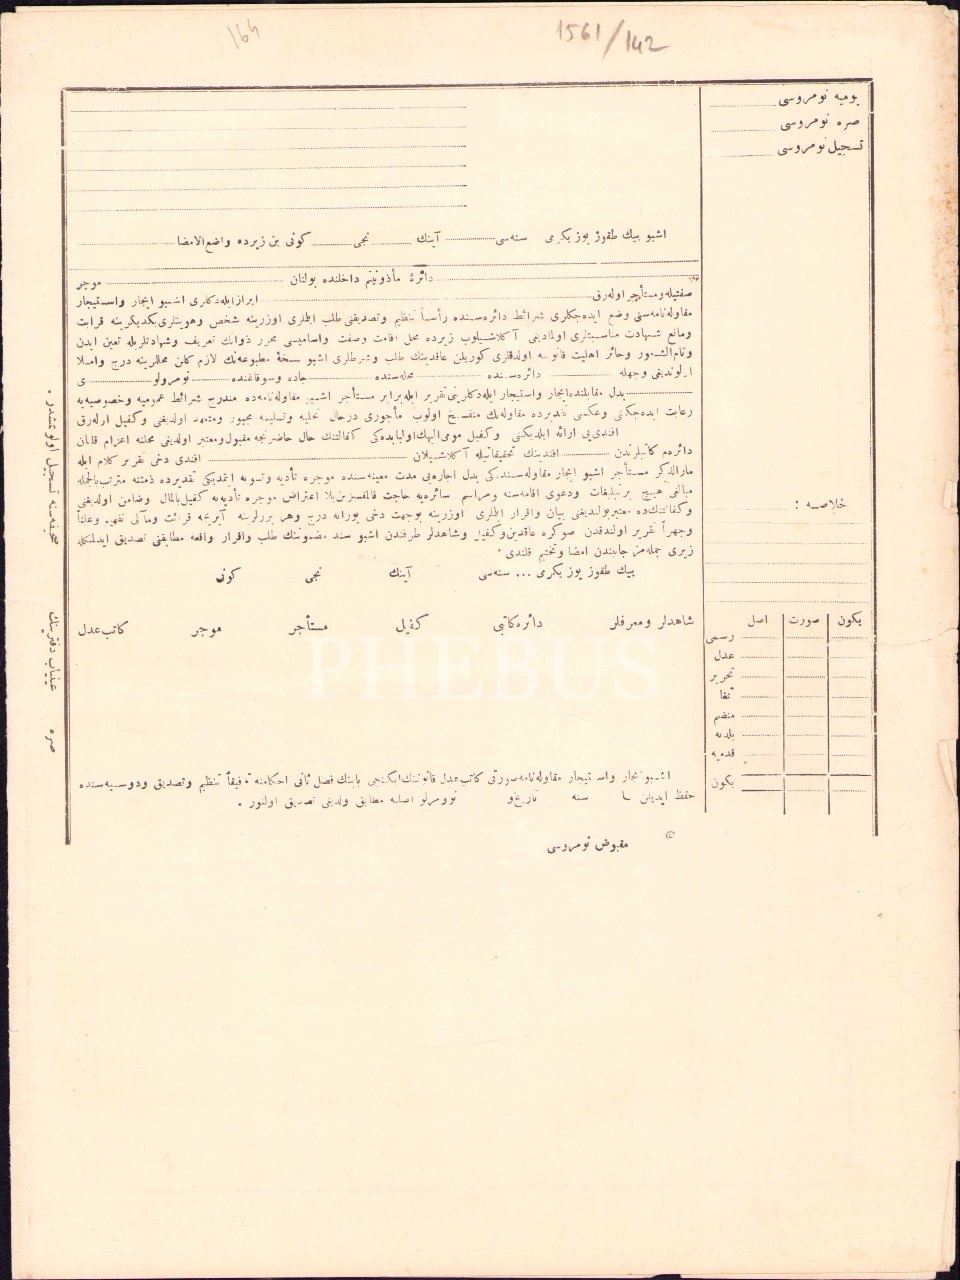 164
1561/142
يوميه نومروسی
صره نومروسی
تسجيل نومروسی
اشبو بيك طقوز يوز يكرمی سنه‌سی آينك نجی كونی بن زيرده واضع الامضا
دائرهٔ مأذونيتم داخلنده بولنان موجر
صفتيله ومستأجر اوله‌رق ابراز ايله‌دكلری اشبو ايجار واستيجار
مقاوله‌نامه‌سنی وضع ايده‌جكلری شرائط دائره‌سنده رأساً تنظيم وتصديقنی طلب ايتملری اوزرينه شخص وهويتلری يكديكرينه قرابت
ومانع شهادت مناسبتلری اولمديغی آكلاشيلوب زيرده محل اقامت وصفت واساميسی محرر ذواتك تعريف وشهادتلريله تعين ايدن
وتام الشعور وحائز اهليت قانونيه اولدقلری كوريلن عاقدينك طلب وشرطلری اشبو نسخهٔ مطبوعه‌نك لازم كلن محللرينه درج واملا
اولونديغی وجهله دائره‌سنده محله‌سنده جاده وسوقاغنده نومرولو ی
بدل مقابلنده ايجار واستيجار ايله‌دكلرينی تقرير ايله برابر مستأجر اشبو مقاوله‌نامه‌ده مندرج شرائط عموميه وخصوصيه‌يه
رعايت ايده‌جكنی وعكسی تقديرده مقاوله‌نك منفسخ اولوب مأجوری درحال تخليه وتسليمه مجبور ومتعهد اولديغنی وكفيل اوله‌رق
افندی‌يی ارائه ايلديكنی وكفيل مومی اليهك اولبابده‌كی كفالتنك حال حاضرنجه مقبول ومعتبر اولديغی محلنه اعزام قلنان
دائره‌م كاتبلرندن افندينك تحقيقاتيله آكلاشيلان افندی دخی تقرير كلام ايله
مارالذكر مستأجر اشبو ايجار مقاوله سندنده‌كی بدل اجاره‌يی مدت معينه‌سنده موجره تأديه وتسويه ايتمديكی تقديرده ذمتنه مترتب بالجمله
مبالغی هيچ بر تبليغات ودعوی اقامه‌سنه ومراسم سائره‌يه حاجت قالمقسزين بلا اعتراض موجره تأديه‌يه كفيل بالمال وضامن اولديغنی
وكفالتنك‌ده معتبر بولنديغنی بيان واقرار ايتملری اوزرينه بوجهت دخی بورايه درج وهر بررلرينه آيريجه قرائت ومآلی تفهيم وعلناً
وجهراً تقرير اولندقدن صوكره عاقدين وكفيل وشاهدلر طرفندن اشبو سند مضموننك طلب واقرار واقعه مطابقی تصديق ايدلمكله
زيری جمله‌مز جانبندن امضا وتختيم قلندی ٠
بيك طقوز يوز يكرمی ... سنه‌سی آينك نجی كونی
شاهدلر ومعرفلر دائره كاتبی كفيل مستأجر موجر كاتب عدل
خلاصه :
يكون صورت اصل
رسمی
عدل
تحرير
تمغا
منضم
بلديه
قدميه
يكون
اشبو ايجار واستيجار مقاوله‌نامه صورتی كاتب عدل قانوننك ايكنجی بابنك فصل ثانی احكامنه توفيقاً تنظيم وتصديق ودوسيه‌سنده
حفظ ايديلن سنه تاريخ و نومرولو اصلنه مطابق ولديغی تصديق اولنور ٠
مقبوض نومروسی
صره دفترينك صحيفه‌سنه تسجيل اولونمشدر ٠
PHEBUS